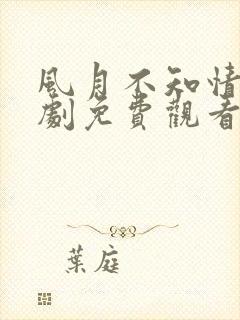 風月不知情
劇免費觀看
葉庭